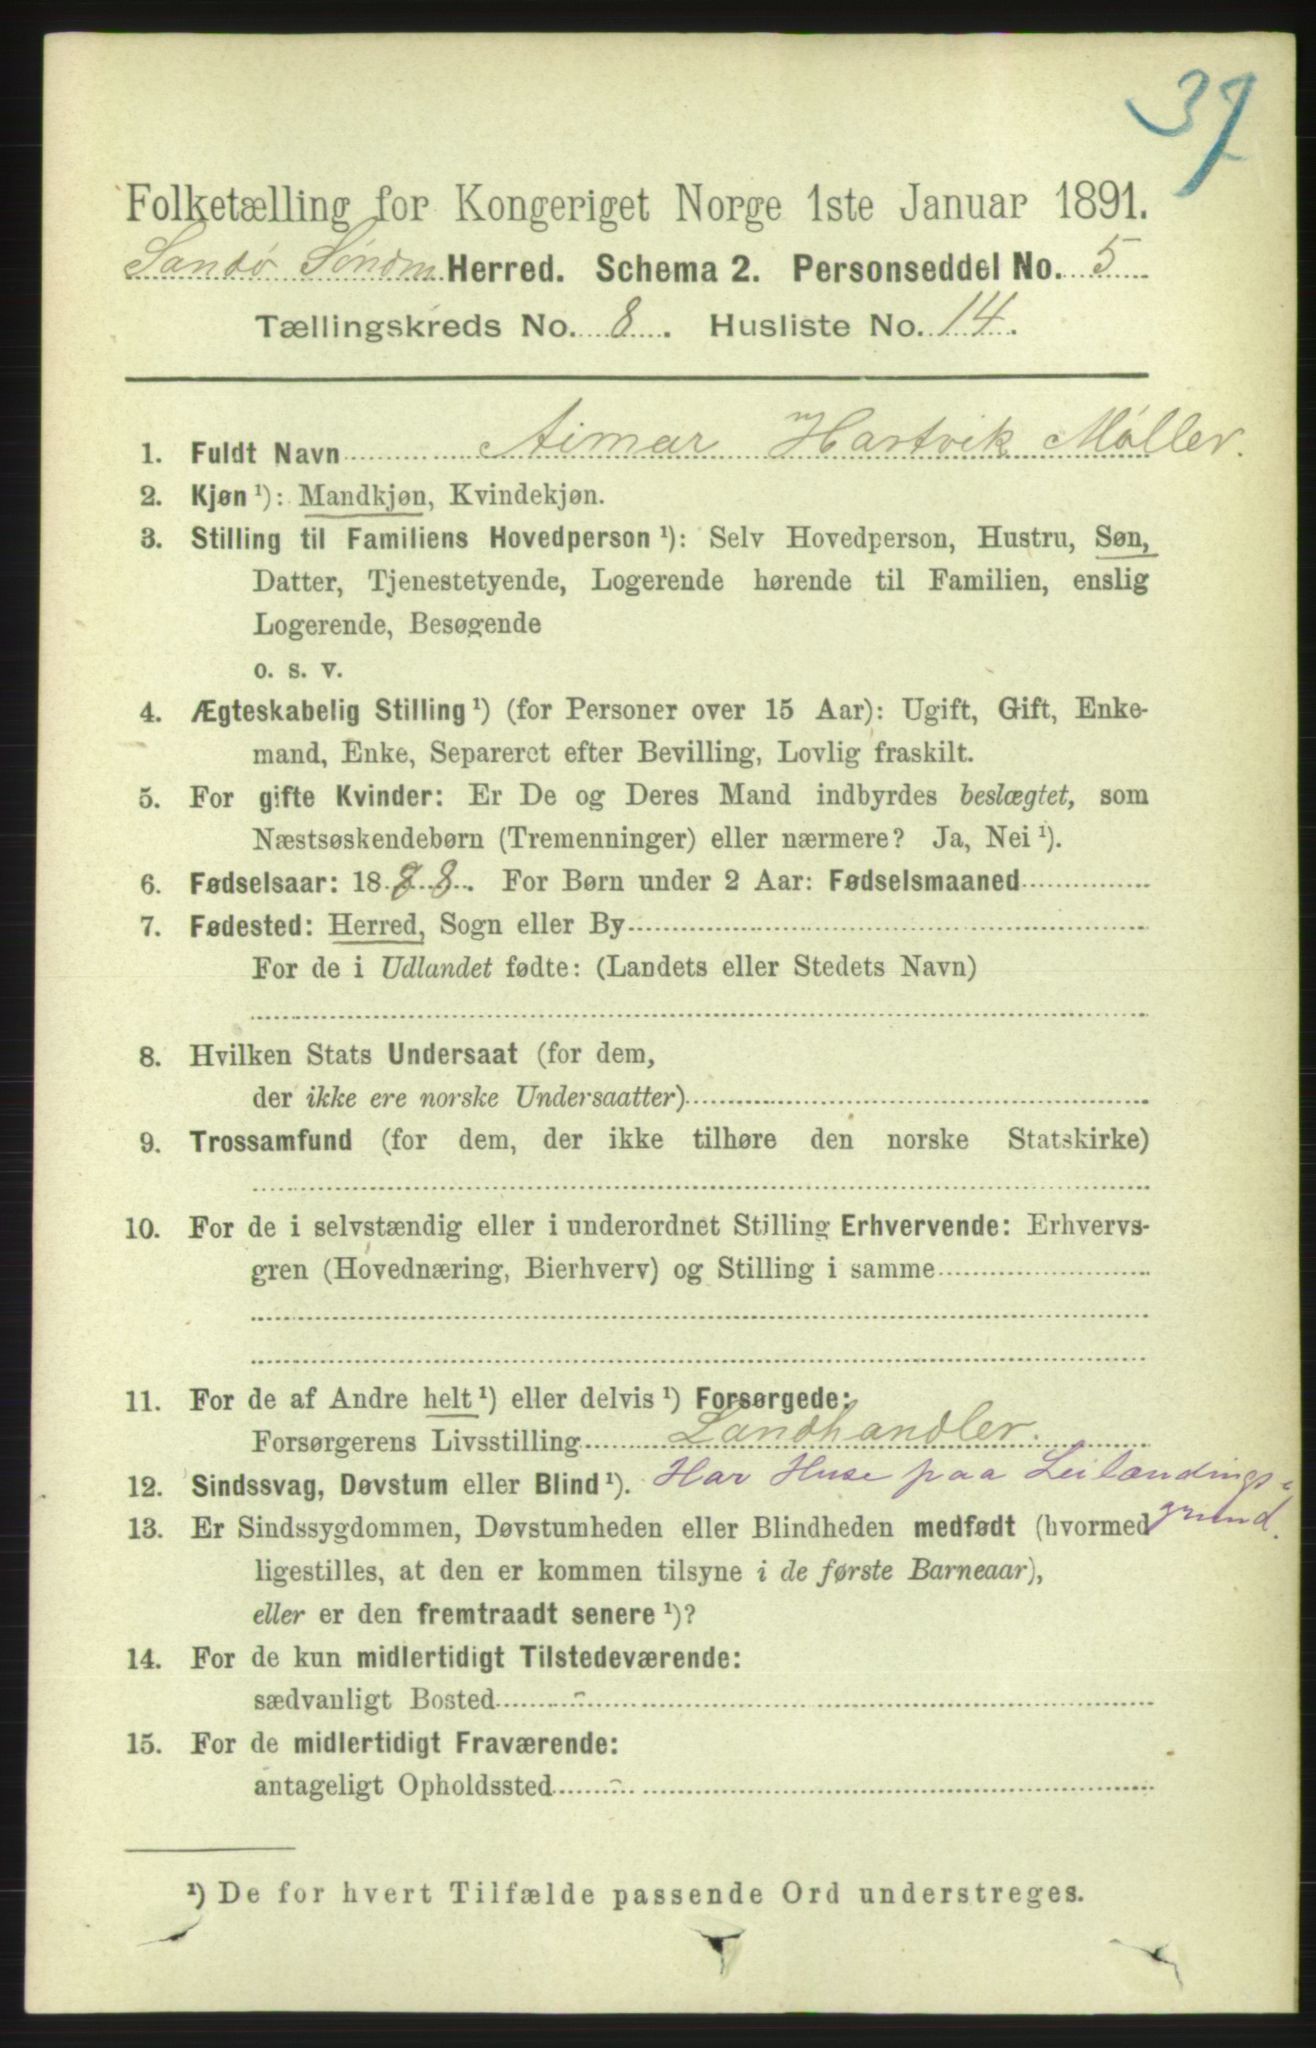 37
Folketælling for Kongeriget Norge 1ste Januar 1891.
Sandø Søndm Herred. Schema 2. Personseddel No. 5
Tællingskreds No. 8. Husliste No. 14.
1. Fuldt Navn Aimar Hartvik Møller.
2. Kjøn ¹): Mandkjøn, Kvindekjøn.
3. Stilling til Familiens Hovedperson ¹): Selv Hovedperson, Hustru, Søn,
Datter, Tjenestetyende, Logerende hørende til Familien, enslig
Logerende, Besøgende
o. s. v.
4. Ægteskabelig Stilling ¹) (for Personer over 15 Aar): Ugift, Gift, Enke-
mand, Enke, Separeret efter Bevilling, Lovlig fraskilt.
5. For gifte Kvinder: Er De og Deres Mand indbyrdes beslægtet, som
Næstsøskendebørn (Tremenninger) eller nærmere? Ja, Nei ¹).
6. Fødselsaar: 1888. For Børn under 2 Aar: Fødselsmaaned
7. Fødested: Herred, Sogn eller By
For de i Udlandet fødte: (Landets eller Stedets Navn)
8. Hvilken Stats Undersaat (for dem,
der ikke ere norske Undersaatter)
9. Trossamfund (for dem, der ikke tilhøre den norske Statskirke)
10. For de i selvstændig eller i underordnet Stilling Erhvervende: Erhvervs-
gren (Hovednæring, Bierhverv) og Stilling i samme
11. For de af Andre helt ¹) eller delvis ¹) Forsørgede:
Forsørgerens Livsstilling Landhandler.
12. Sindssvag, Døvstum eller Blind ¹). Har Huse paa Leilændings-
grund.
13. Er Sindssygdommen, Døvstumheden eller Blindheden medfødt (hvormed
ligestilles, at den er kommen tilsyne i de første Barneaar),
eller er den fremtraadt senere ¹)?
14. For de kun midlertidigt Tilstedeværende:
sædvanligt Bosted -
15. For de midlertidigt Fraværende:
antageligt Opholdssted -
¹) De for hvert Tilfælde passende Ord understreges.